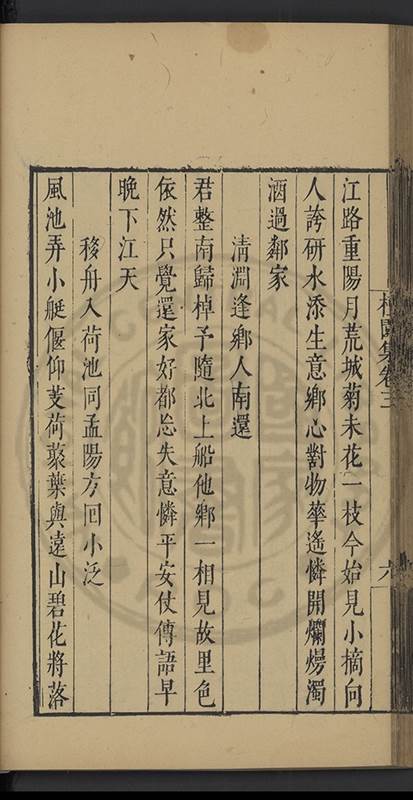 江路重陽月荒城菊未花一枝今始見小摘向
人誇研水添生意鄉心對物華遙憐開爛熳濁
酒過鄰家
清淵逢鄉人南還
君整南歸棹予隨北上船他鄉一相見故里色
依然只覺還家好都忘失意憐平安仗傳語早
晚下江天
移舟入荷池同孟陽方回小泛
風池弄小艇偃仰芰荷叢葉與遠山碧花將落
集卷三
六